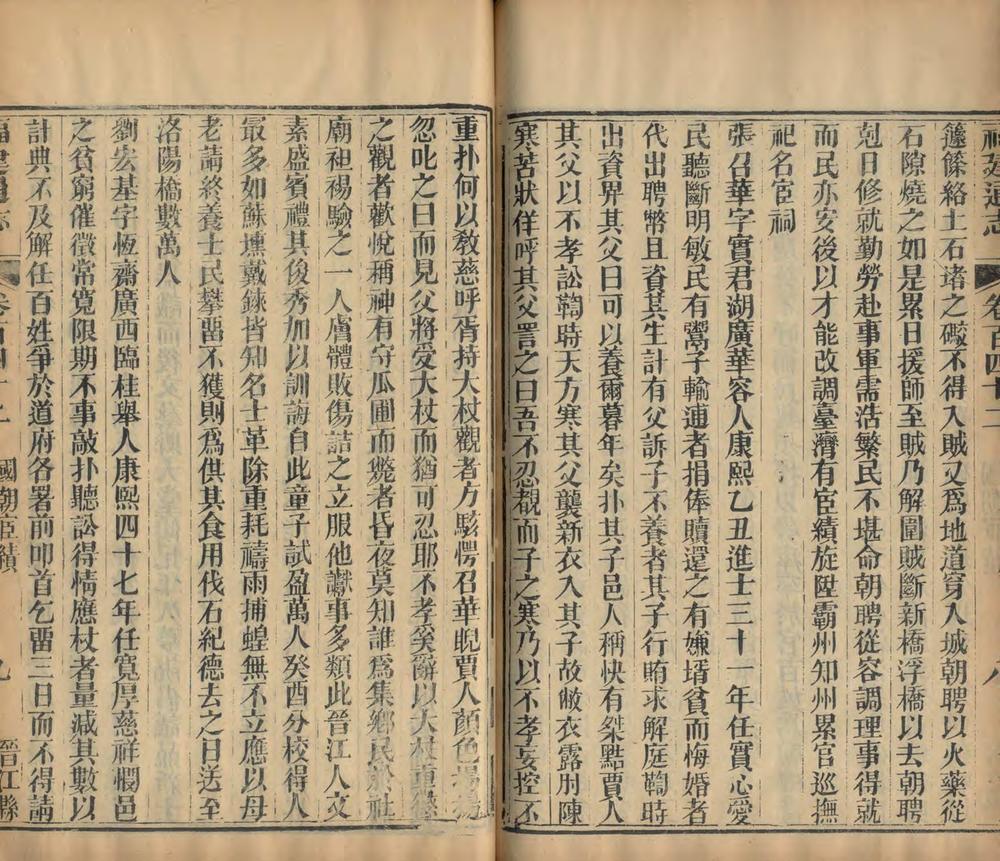 福建通志 卷百四十二 八
籧篨絡土石堵之礮不得入賊又爲地道穿入城朝聘以火藥從
石隙燒之如是累日援師至賊乃解圍賊斷新橋浮橋以去朝聘
剋日修就勤勞赴事軍需浩繁民不堪命朝聘從容調理事得就
而民亦安後以才能改調臺灣有宦績旋陞霸州知州累官巡撫
祀名宦祠
張召華字實君湖廣華容人康熙乙丑進士三十一年任實心愛
民聽斷明敏民有鬻子輸逋者捐俸贖還之有嫌壻貧而悔婚者
代出聘幣且資其生計有父訴子不養者其子行賄求解庭鞫時
出資畀其父曰可以養爾暮年矣扑其子邑人稱快有桀黠賈人
其父以不孝訟鞫時天方寒其父襲新衣入其子故敝衣露肘陳
寒苦狀佯呼其父詈之曰吾不忍覩而子之寒乃以不孝妄控不
重扑何以教慈呼胥持大杖觀者方駭愕召華睨賈人顏色揚揚
忽叱之曰而見父將受大杖而猶可忍耶不孝奚辭以大杖重懲
之觀者歡悅稱神有守瓜圃而斃者昏夜莫知誰爲集鄉民於社
廟袒裼驗之一人膚體敗傷詰之立服他讞事多類此晉江人文
素盛賓禮其俊秀加以訓誨自此童子試盈萬人癸酉分校得人
最多如蘇壎戴錸皆知名士革除重耗禱雨捕蝗無不立應以母
老請終養士民攀畱不獲則爲供其食用伐石紀德去之日送至
洛陽橋數萬人
劉宏基字恆齋廣西臨桂舉人康熙四十七年任寬厚慈祥憫邑
之貧窮催徵常寬限期不事敲扑聽訟得情應杖者量減其數以
計典不及解任百姓爭於道府各署前叩首乞畱三日而不得請
福建通志 卷百四十二 國朝宦績 九 晉江縣